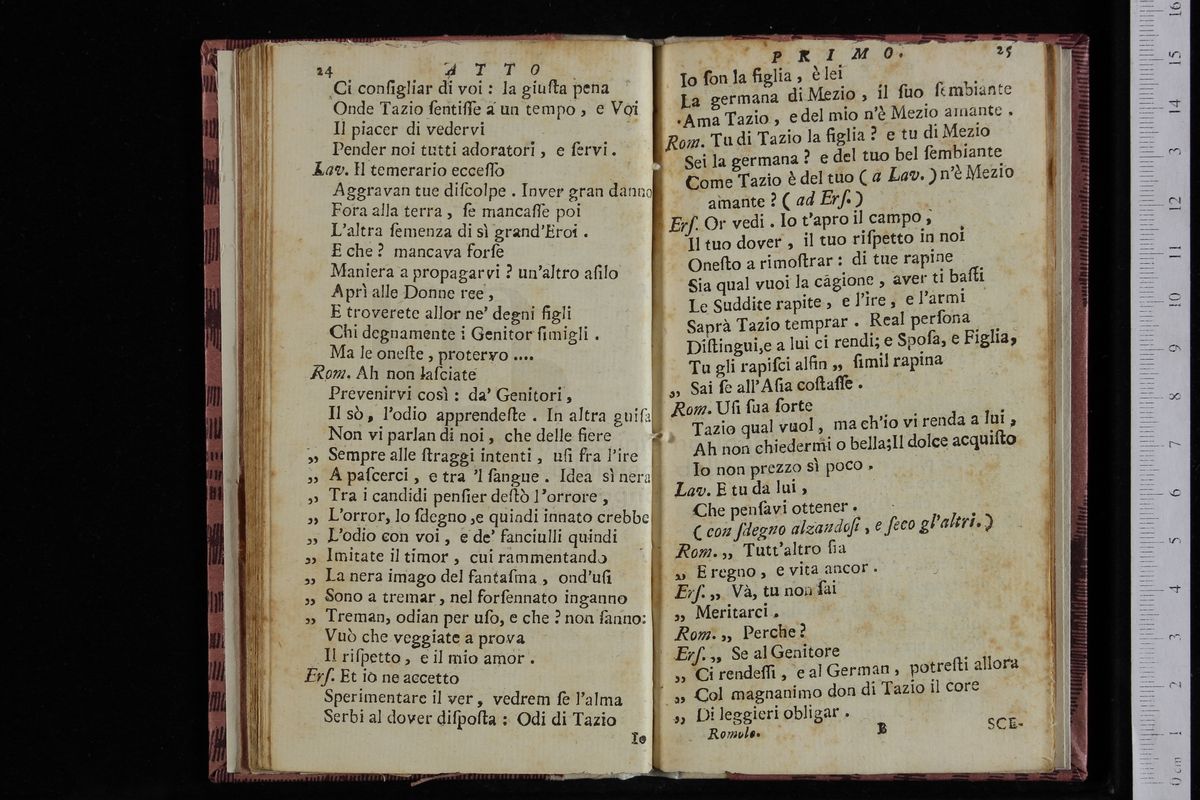 24 ATTO
Ci conſigliar di voi : la giuſta pena
Onde Tazio ſentiſſe a un tempo , e Voi
Il piacer di vedervi
Pender noi tutti adoratori , e ſervi .
Lav. Il temerario ecceſſo
Aggravan tue diſcolpe . Inver gran danno
Fora alla terra , ſe mancaſſe poi
L'altra ſemenza di sì grand'Eroi .
E che ? mancava forſe
Maniera a propagarvi ? un'altro aſilo
Aprì alle Donne ree ,
E troverete allor ne' degni figli
Chi degnamente i Genitor ſimigli .
Ma le oneſte , protervo ....
Rom. Ah non laſciate
Prevenirvi così : da' Genitori ,
Il sò , l'odio apprendeſte . In altra guiſa
Non vi parlan di noi , che delle fiere
„ Sempre alle ſtraggi intenti , uſi fra l'ire
„ A paſcerci , e tra 'l ſangue . Idea sì nera
„ Tra i candidi penſier deſtò l'orrore ,
„ L'orror, lo ſdegno ,e quindi innato crebbe
„ L'odio con voi , e de' fanciulli quindi
„ Imitate il timor , cui rammentando
„ La nera imago del fantaſma , ond'uſi
„ Sono a tremar , nel forſennato inganno
„ Treman, odian per uſo, e che ? non ſanno:
Vuò che veggiate a prova
Il riſpetto , e il mio amor .
Erſ. Et iò ne accetto
Sperimentare il ver , vedrem ſe l'alma
Serbi al dover diſpoſta : Odi di Tazio
Io
PRIMO. 25
Io ſon la figlia , è lei
La germana di Mezio , il ſuo ſembiante
Ama Tazio , e del mio n'è Mezio amante .
Rom. Tu di Tazio la figlia ? e tu di Mezio
Sei la germana ? e del tuo bel ſembiante
Come Tazio è del tuo ( a Lav. ) n'è Mezio
amante ? ( ad Erſ. )
Erſ. Or vedi . Io t'apro il campo ,
Il tuo dover , il tuo riſpetto in noi
Oneſto a rimoſtrar : di tue rapine
Sia qual vuoi la cagione , aver ti baſti
Le Suddite rapite , e l'ire , e l'armi
Saprà Tazio temprar . Real perſona
Diſtingui,e a lui ci rendi; e Spoſa, e Figlia,
Tu gli rapiſci alfin „ ſimil rapina
„ Sai ſe all'Aſia coſtaſſe .
Rom. Uſi ſua forte
Tazio qual vuol , ma ch'io vi renda a lui ,
Ah non chiedermi o bella;Il dolce acquiſto
Io non prezzo sì poco .
Lav. E tu da lui ,
Che penſavi ottener .
( con ſdegno alzandoſi , e ſeco gl'altri. )
Rom. „ Tutt'altro ſia
„ E regno , e vita ancor .
Erſ. „ Và, tu non ſai
„ Meritarci .
Rom. „ Perche ?
Erſ. „ Se al Genitore
„ Ci rendeſſi , e al German , potreſti allora
„ Col magnanimo don di Tazio il core
„ Di leggieri obligar .
Romolo. B SCE-